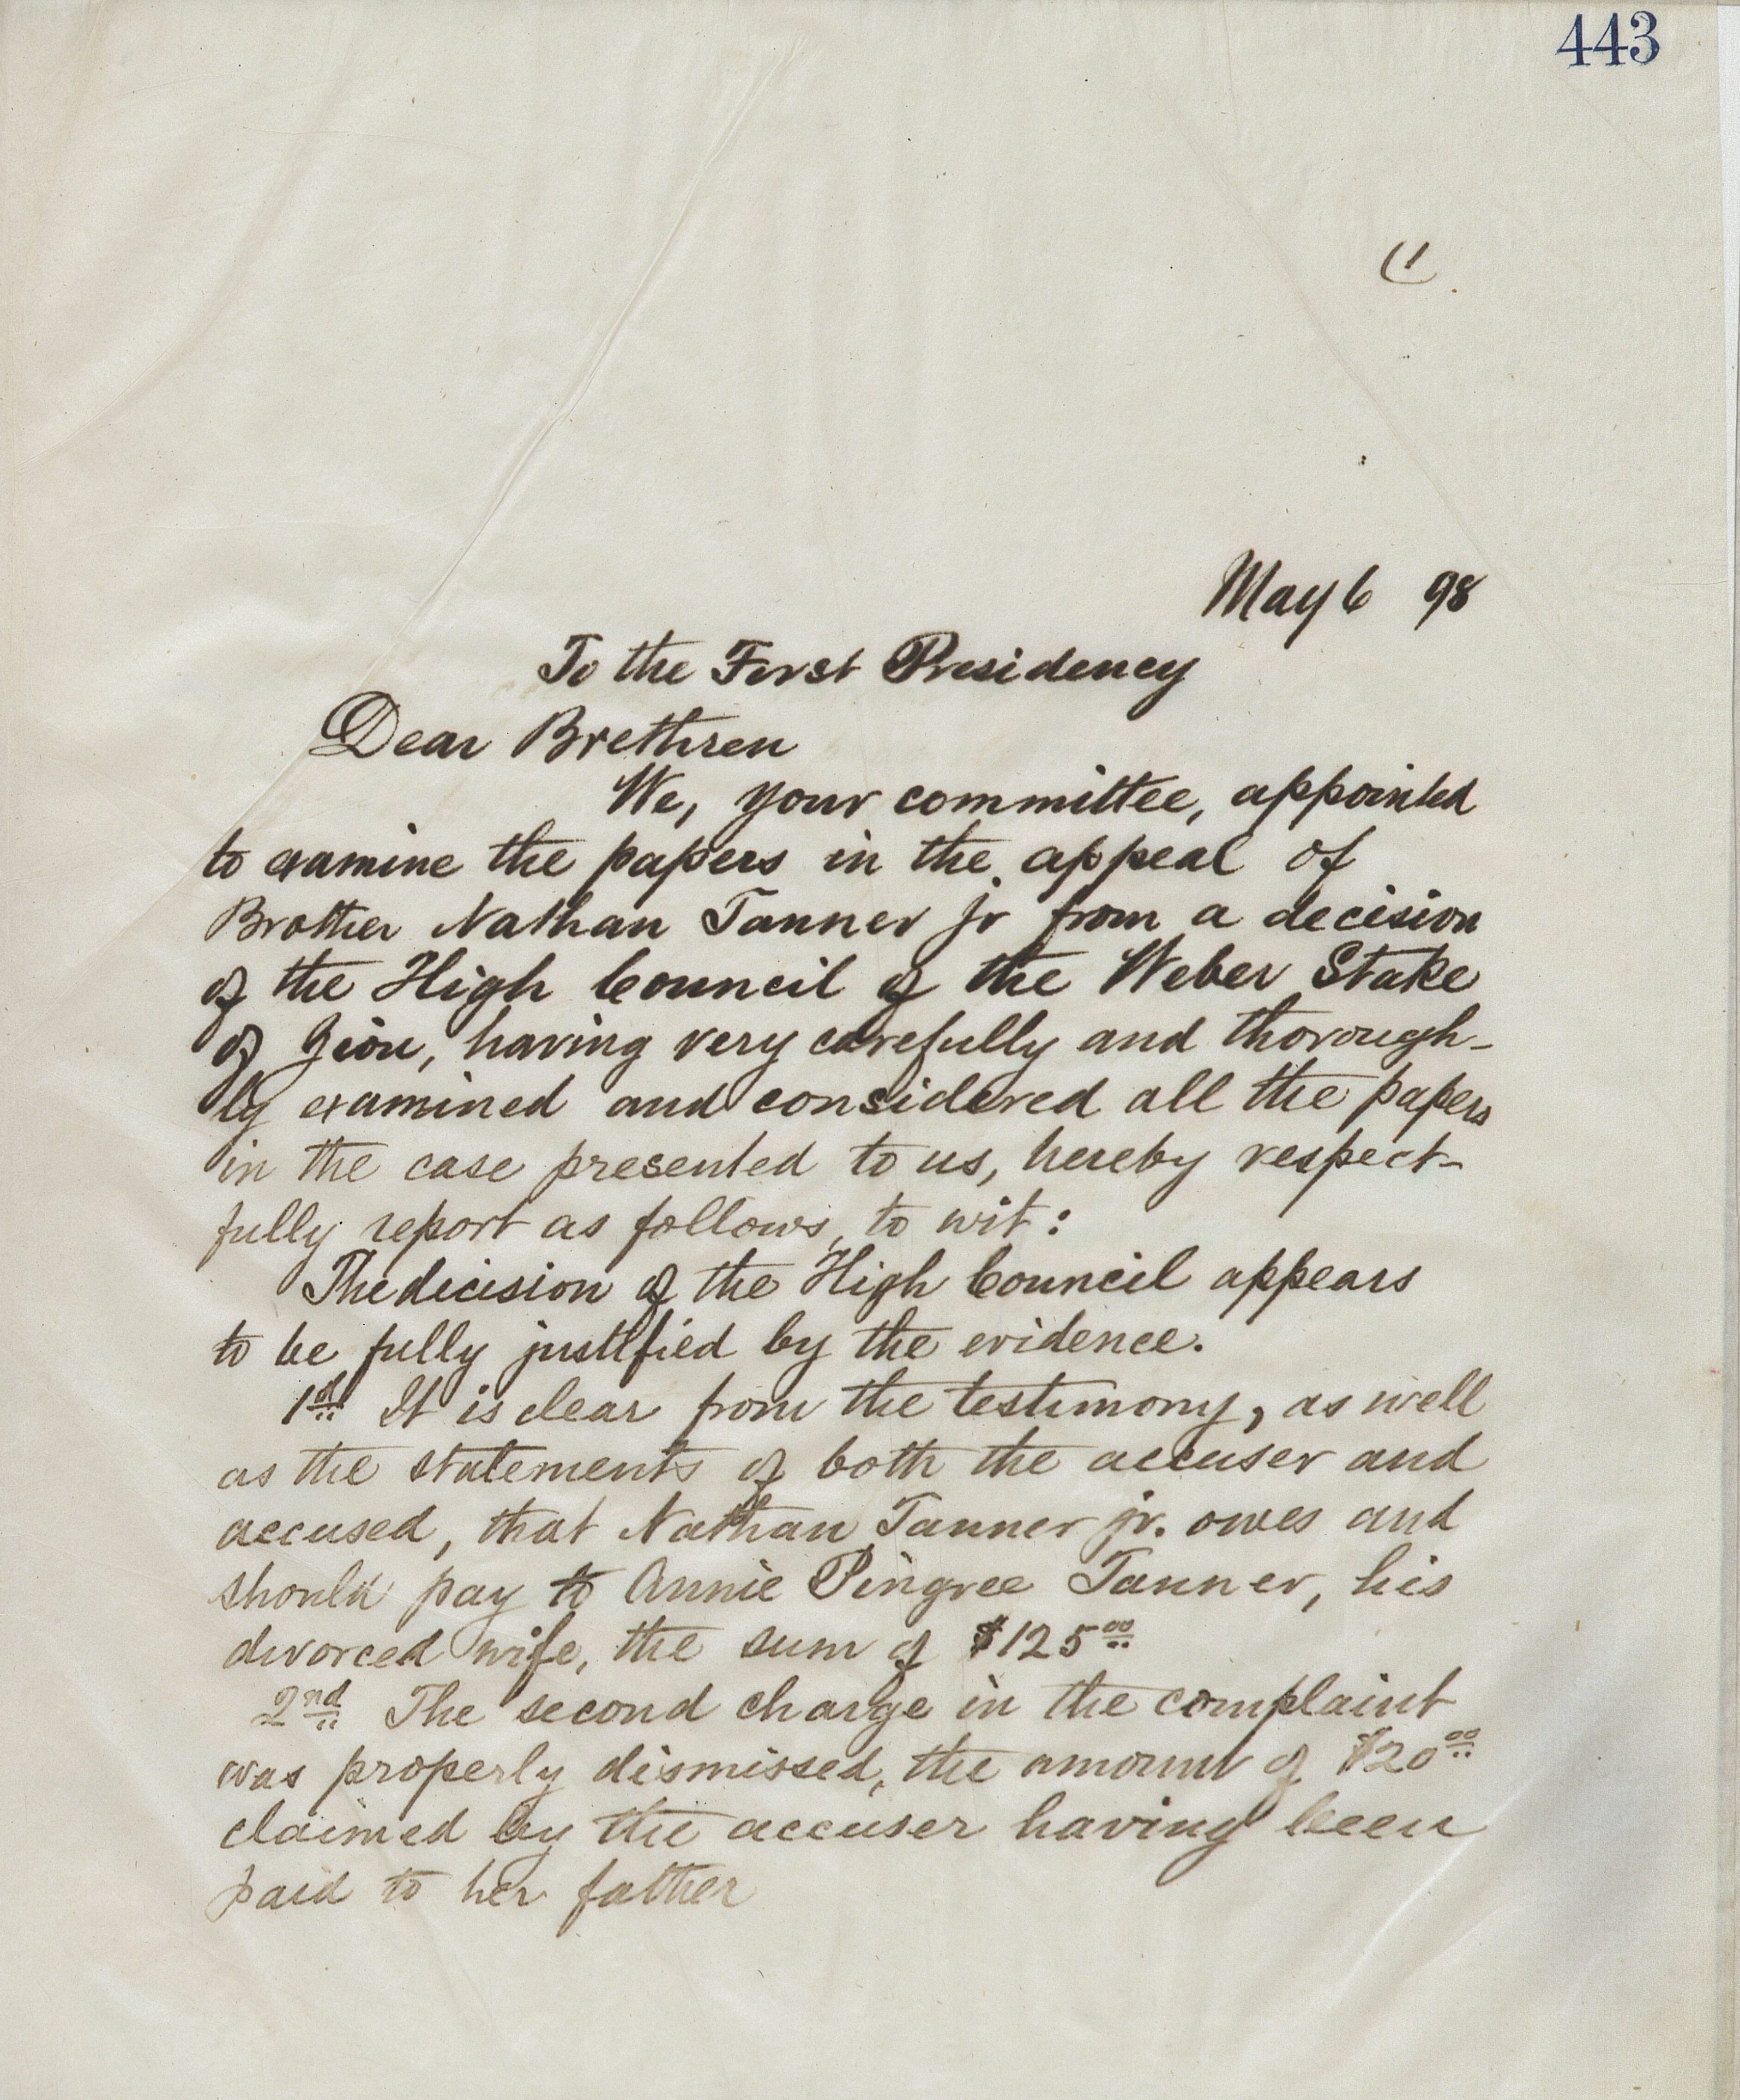 443
(1
May 6 98
To the First Presidency
Dear Brethren
We, your committee, appointed
to examine the papers in the appeal of
Brother Nathan Tanner jr from a decision
of the High Council of the Weber Stake
of Zion, having very carefully and thorough-
ly examined and considered all the papers
in the case presented to us, hereby respect-
fully report as follows, to wit:
The decision of the High Council appears
to be fully justified by the evidence.
1st It is clear from the testimony, as well
as the statements of both the accuser and
accused, that Nathan Tanner jr. owes and
should pay to Annie Pingree Tanner, his
divorced wife, the sum of $125 00
2nd The second charge in the complaint
was properly dismissed, the amount of $20 00
claimed by the accuser having been
paid to her father